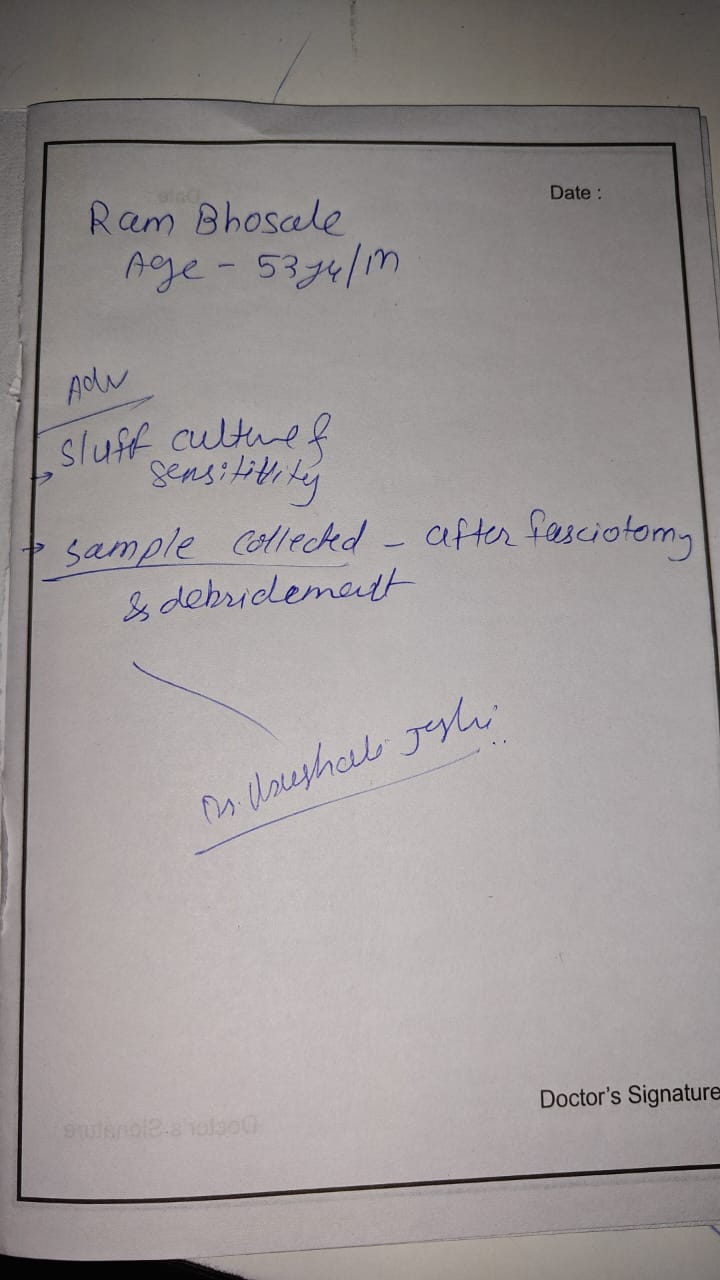 Date :
Ram Bhosale
Age - 53yr/M
Adv
→ Sluff culture &
sensitivity
→ Sample collected - after fasciotomy
& debridement
Dr. Vaishali Joshi
Doctor's Signature